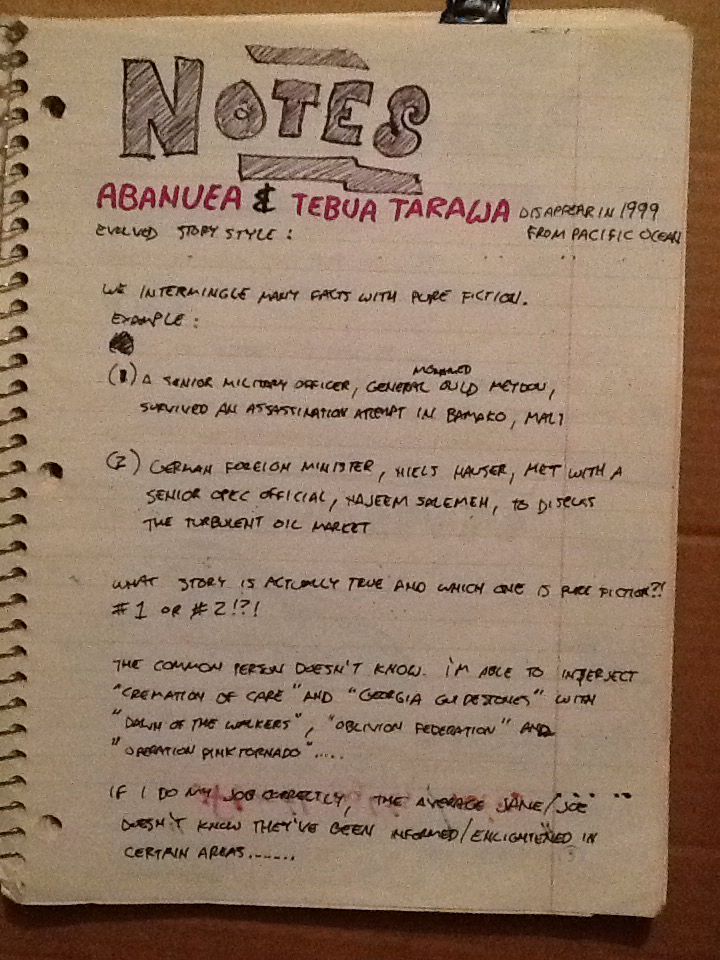 NOTES
ABANUEA & TEBUA TARAWA DISAPPEAR IN 1999
EVOLVED STORY STYLE : FROM PACIFIC OCEAN
WE INTERMINGLE MANY FACTS WITH PURE FICTION.
EXAMPLE :
MOHAMED
(1) A SENIOR MILITARY OFFICER, GENERAL OULD MEYDOU,
SURVIVED AN ASSASSINATION ATTEMPT IN BAMAKO, MALI
(2) GERMAN FOREIGN MINISTER, NIELS HAUSER, MET WITH A
SENIOR OPEC OFFICIAL, NAJEEM SALEMEH, TO DISCUSS
THE TURBULENT OIL MARKET
WHAT STORY IS ACTUALLY TRUE AND WHICH ONE IS PURE FICTION?!
#1 OR #2!?!
THE COMMON PERSON DOESN'T KNOW. I'M ABLE TO INTERJECT
"CREMATION OF CARE" AND "GEORGIA GUIDESTONES" WITH
"DAWN OF THE WALKERS", "OBLIVION FEDERATION" AND
"OPERATION PINK TORNADO".....
IF I DO MY JOB CORRECTLY, THE AVERAGE JANE/JOE
DOESN'T KNOW THEY'VE BEEN INFORMED/ENLIGHTENED IN
CERTAIN AREAS.......